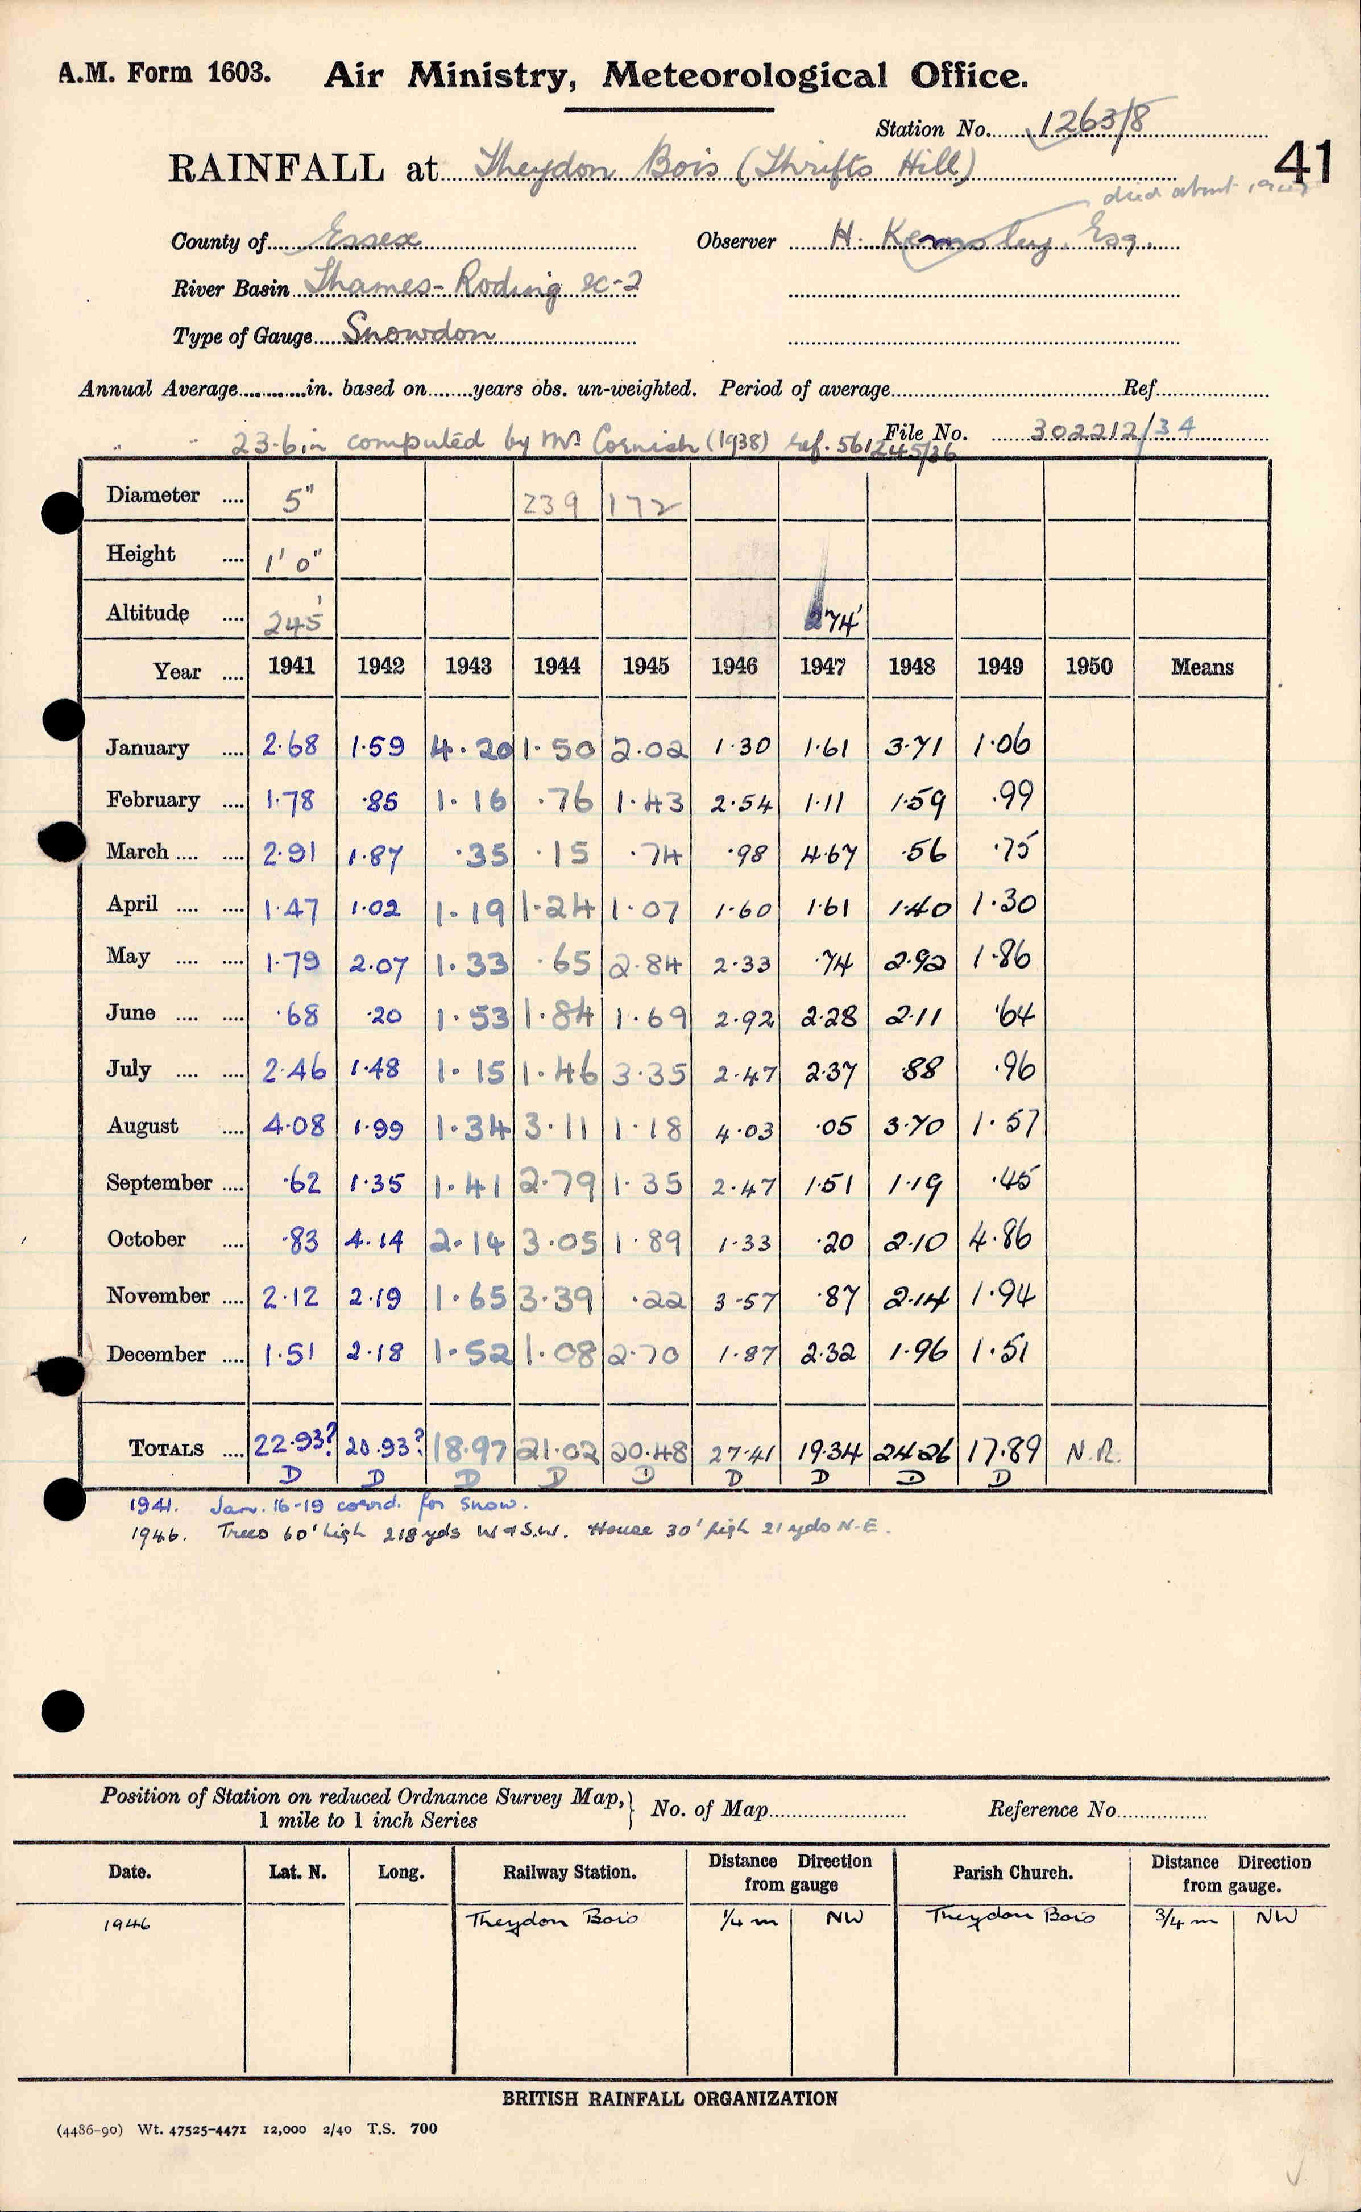 A.M. Form 1603. Air Ministry, Meteorological Office.
Station No. 1263/8
41
RAINFALL at Theydon Bois (Thrifts Hill)
died about
County of Essex Observer H. Kemsley. Esq.
River Basin Thames-Roding
Type of Gauge Snowdon
Annual Average in. based on years obs. un-weighted. Period of average Ref
" " 23.6 in computed by Mr Cornish (1938) ref. 561245/36 File No. 302212/34
Diameter 5" 239 172
Height 1' 0"
Altitude 245' 274'
Year 1941 1942 1943 1944 1945 1946 1947 1948 1949 1950 Means
January 2.68 1.59 4.20 1.50 2.02 1.30 1.61 3.71 1.06
February 1.78 .85 1.16 .76 1.43 2.54 1.11 1.59 .99
March 2.91 1.87 .35 .15 .74 .98 4.67 .56 .75
April 1.47 1.02 1.19 1.24 1.07 1.60 1.61 1.40 1.30
May 1.79 2.07 1.33 .65 2.84 2.33 .74 2.92 1.86
June .68 .20 1.53 1.84 1.69 2.92 2.28 2.11 .64
July 2.46 1.48 1.15 1.46 3.35 2.47 2.37 .88 .96
August 4.08 1.99 1.34 3.11 1.18 4.03 .05 3.70 1.57
September .62 1.35 1.41 2.79 1.35 2.47 1.51 1.19 .45
October .83 4.14 2.14 3.05 1.89 1.33 .20 2.10 4.86
November 2.12 2.19 1.65 3.39 .22 3.57 .87 2.14 1.94
December 1.51 2.18 1.52 1.08 2.70 1.87 2.32 1.96 1.51
TOTALS 22.93? 20.93? 18.97 21.02 20.48 27.41 19.34 24.26 17.89 N.R.
D D D D D D D D D
1941. Jan. 16-19 corrd. for snow.
1946. Trees 60' high 218 yds W & S.W. House 30' high 21 yds N.E.
Position of Station on reduced Ordnance Survey Map, No. of Map Reference No
1 mile to 1 inch Series
Date. Lat. N. Long. Railway Station. Distance Direction from gauge Parish Church. Distance Direction from gauge.
1946 Theydon Bois 1/4 m NW Theydon Bois 3/4 m NW
BRITISH RAINFALL ORGANIZATION
(4486-90) Wt. 47525-4471 12,000 2/40 T.S. 700